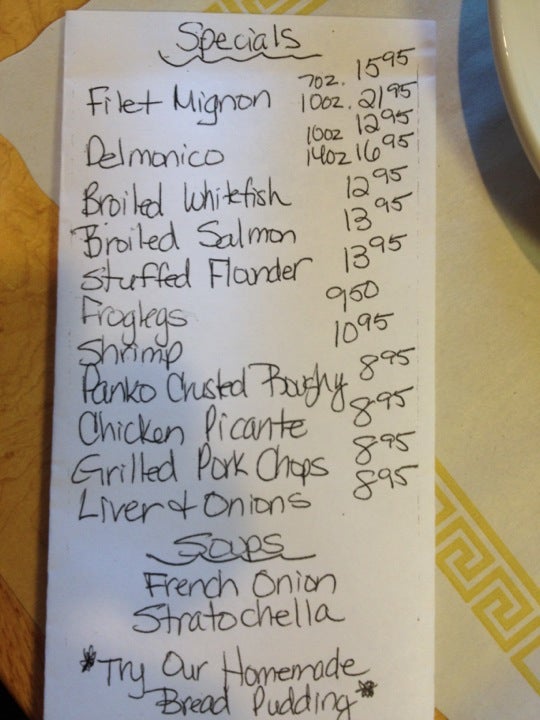 Specials
7oz. 15 95
Filet Mignon 10oz. 21 95
10oz 12 95
Delmonico 14oz 16 95
Broiled Whitefish 12 95
Broiled Salmon 13 95
Stuffed Flounder 13 95
Froglegs 9 50
Shrimp 10 95
Panko Crusted Roughy 8 95
Chicken Picante 8 95
Grilled Pork Chops 8 95
Liver & Onions 8 95
Soups
French Onion
Stratochella
*Try Our Homemade
Bread Pudding*